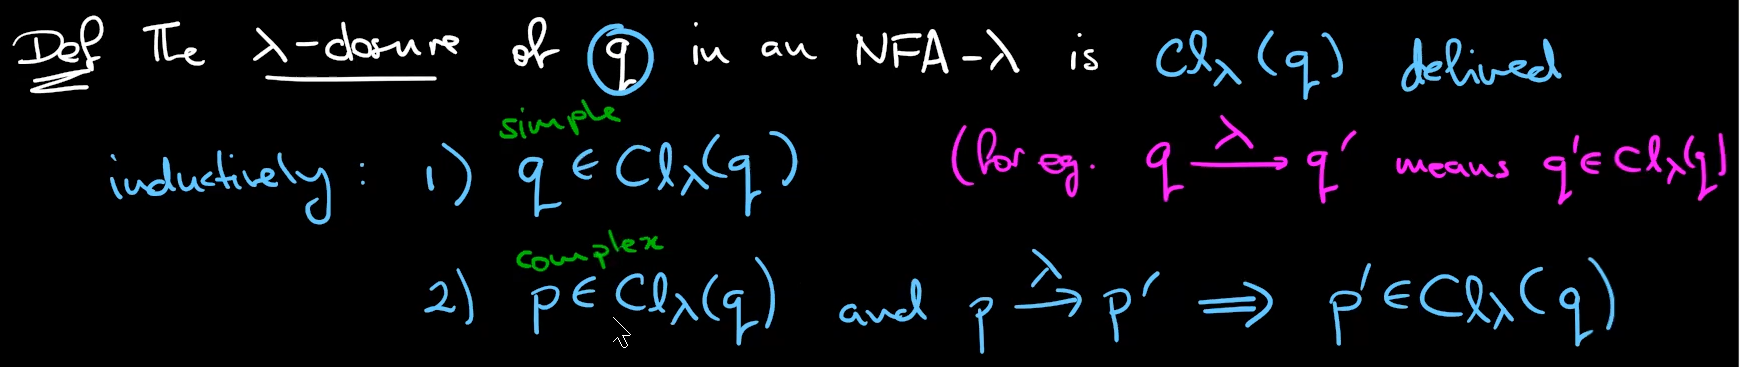 Def The λ-closure of q in an NFA-λ is Clλ(q) defined
simple
inductively: 1) q ∈ Clλ(q) (for eg. q —λ→ q' means q' ∈ Clλ(q)
complex
2) p ∈ Clλ(q) and p —λ→ p' ⟹ p' ∈ Clλ(q)